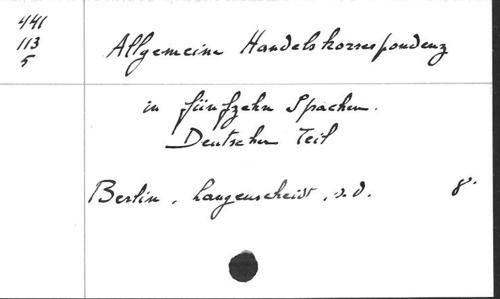 441
113
5
Allgemeine Handelskorrespondenz
in fünfzehn Spachen.
Deutscher Teil
Berlin, Langenscheidt, s.d. 8°